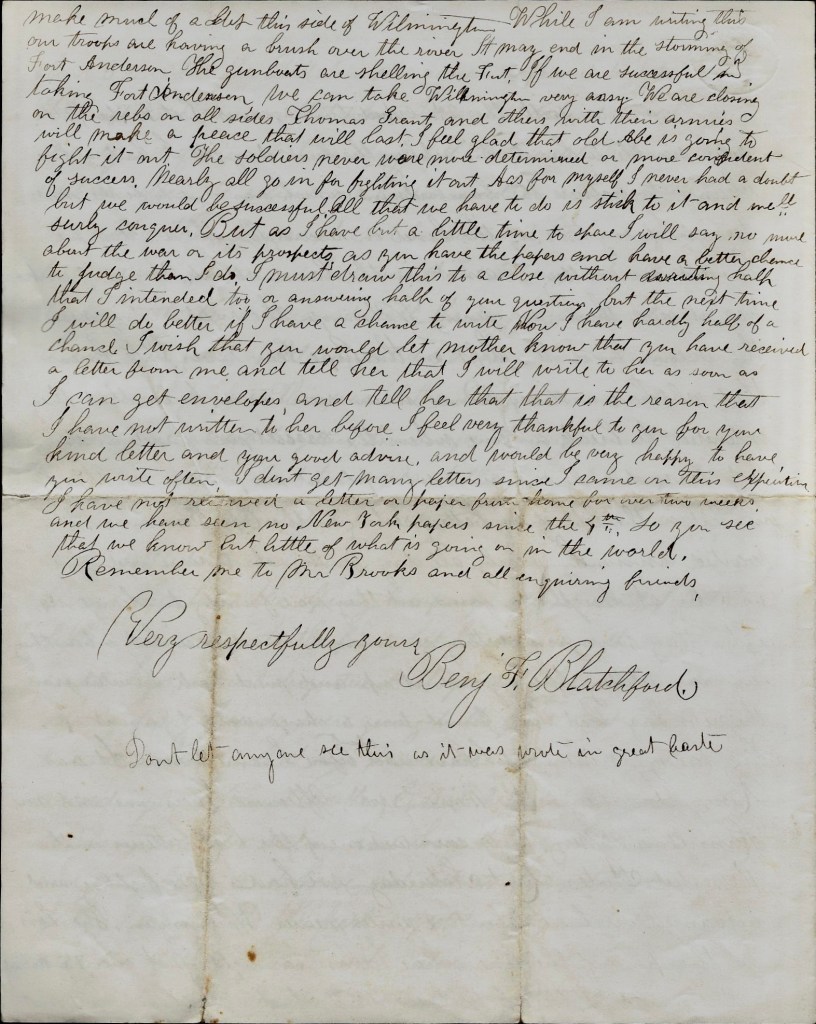 make much of a this side of Wilmington While I am writing this
our troops are having a brush over the rover It may end in the storming of
Fort Anderson. The gunboats are shelling the Fort. If we are successful in
taking Fort Anderson, we can take Wilmington very easy We are closing
on the rebs on all sides Thomas Grant, and others with their armies
will make a peace that will last. I feel glad that old Abe is going to
fight it out The soldiers never were more determined or more confident
of success. Nearly all go in for fighting it out As for myself I never had a doubt
but we would be successful All that we have to do is stick to it and we'll
surly conquer. But as I have but a little time to spare I will say no more
about the war or its prospects, as you have the papers and have a better chance
to judge than I do. I must draw this to a close without writing half
that I intended too or answering half of your questions, but the next time
I will do better if I have a chance to write Now I have hardly half of a
chance. I wish that you would let mother know that you have received
a letter from me and tell her that I will write to her as soon as
I can get envelopes, and tell her that that is the reason that
I have not written to her before I feel very thankful to you for your
kind letter and your good advise, and would be very happy to have
you write often. I dont get many letters since I came on this expedition
I have not received a letter or paper from home for over two weeks
and we have seen no New York papers since the 4th. So you see
that we know but little of what is going on in the world.
Remember me to Mr Brooks and all enquiring friends,
Very respectfully yours
Benj F. Blatchford.
Dont let anyone see this as it was wrote in great haste